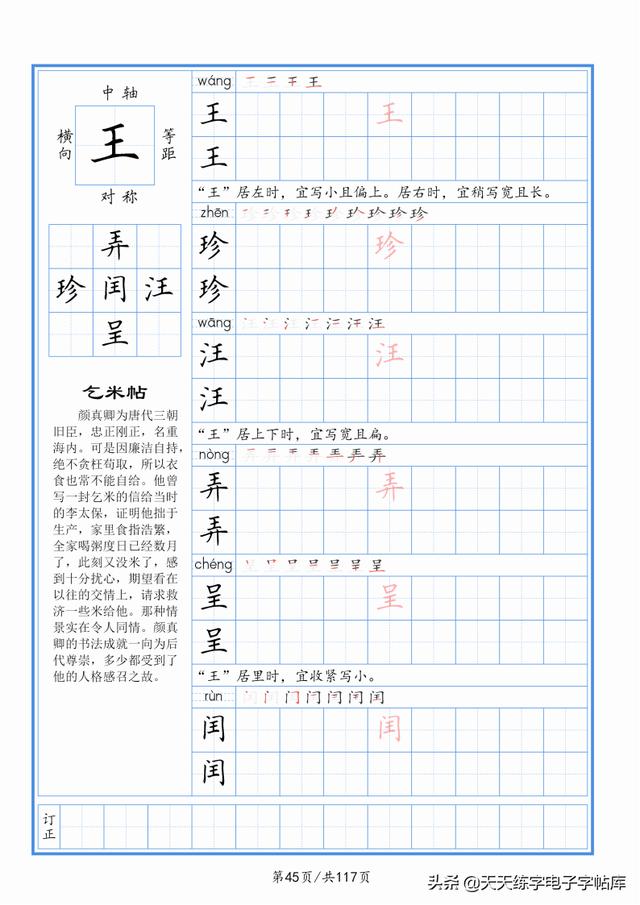 中轴
横向
王
等距
对称
弄
珍闰汪
呈
乞米帖
颜真卿为唐代三朝
旧臣，忠正刚正，名重
海内。可是因廉洁自持，
绝不贪枉苟取，所以衣
食也常不能自给。他曾
写一封乞米的信给当时
的李太保，证明他拙于
生产，家里食指浩繁，
全家喝粥度日已经数月
了，此刻又没米了，感
到十分扰心，期望看在
以往的交情上，请求救
济一些米给他。那种情
景实在令人同情。颜真
卿的书法成就一向为后
代尊崇，多少都受到了
他的人格感召之故。
wáng
王 王
王
“王”居左时，宜写小且偏上。居右时，宜稍写宽且长。
zhēn
珍 珍
珍
wāng
汪 汪
汪
“王”居上下时，宜写宽且扁。
nòng
弄 弄
弄
chéng
呈 呈
呈
“王”居里时，宜收紧写小。
rùn
闰 闰
闰
订正
第45页/共117页
头条 @天天练字电子字帖库